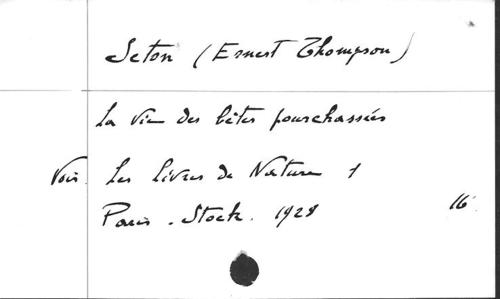 Seton (Ernest Thompson)
La vie des bêtes pourchassées
Voir. Les livres de Nature 1
Paris. Stock. 1928 16